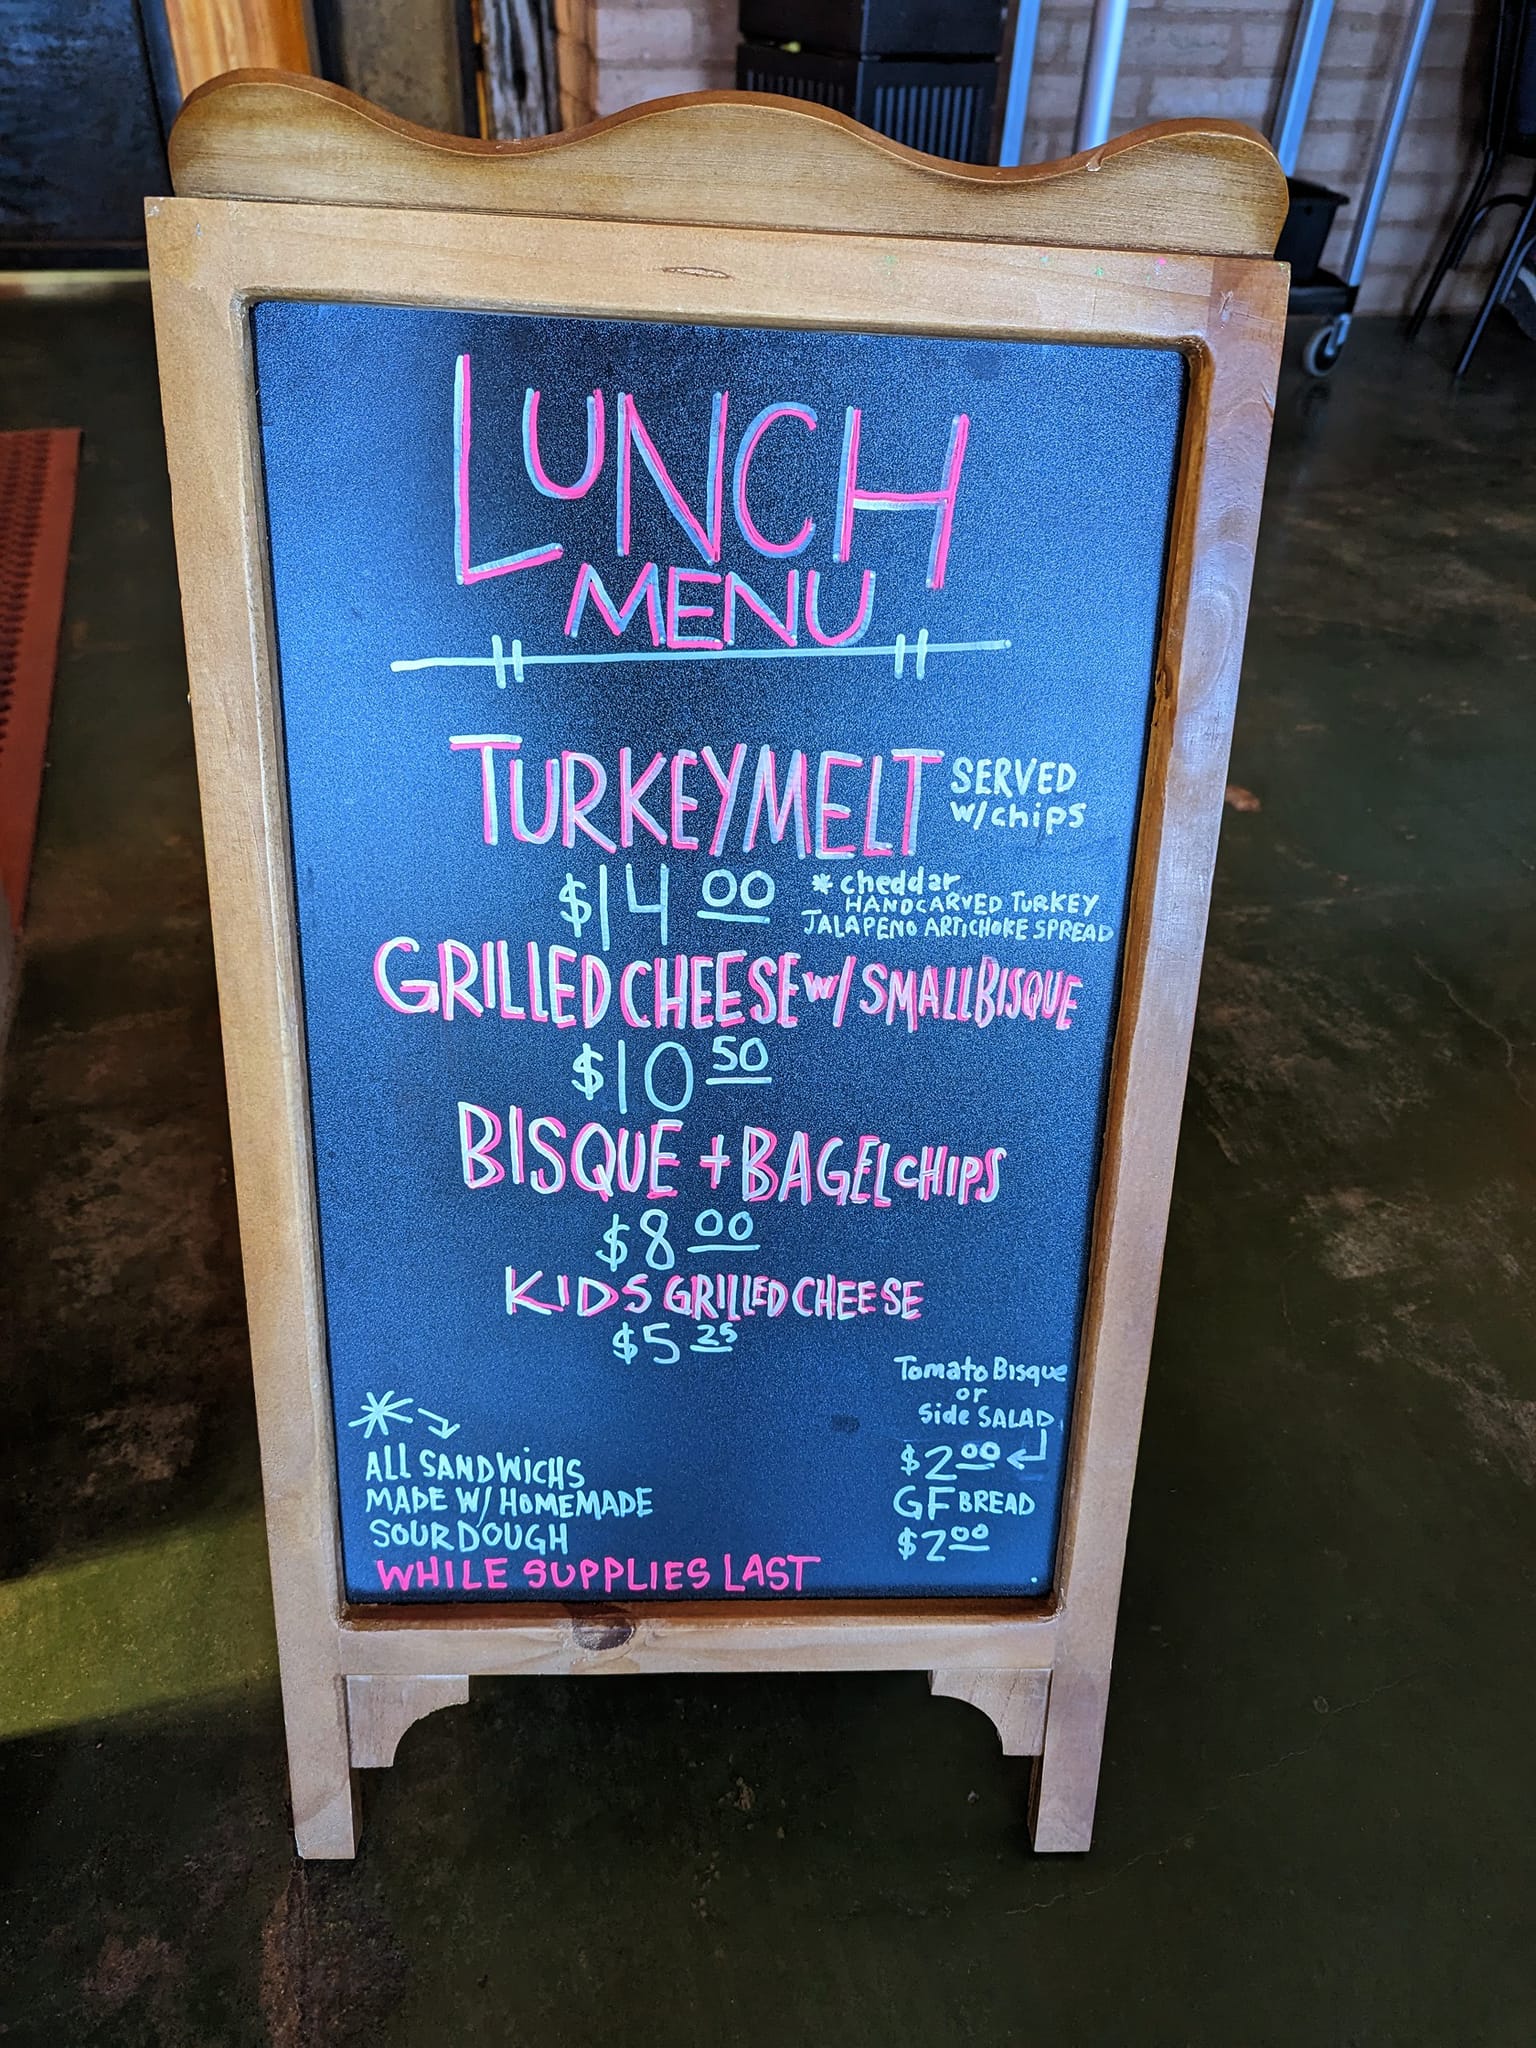 LUNCH
MENU
TURKEY MELT SERVED
w/chips
$14 00 * cheddar
HANDCARVED TURKEY
JALAPENO ARTICHOKE SPREAD
GRILLED CHEESE w/ SMALL BISQUE
$10 50
BISQUE + BAGEL CHIPS
$8 00
KIDS GRILLED CHEESE
$5 25
Tomato Bisque
or
Side SALAD
$2 00
GF BREAD
$2 00
* ALL SANDWICHS
MADE W/ HOMEMADE
SOURDOUGH
WHILE SUPPLIES LAST